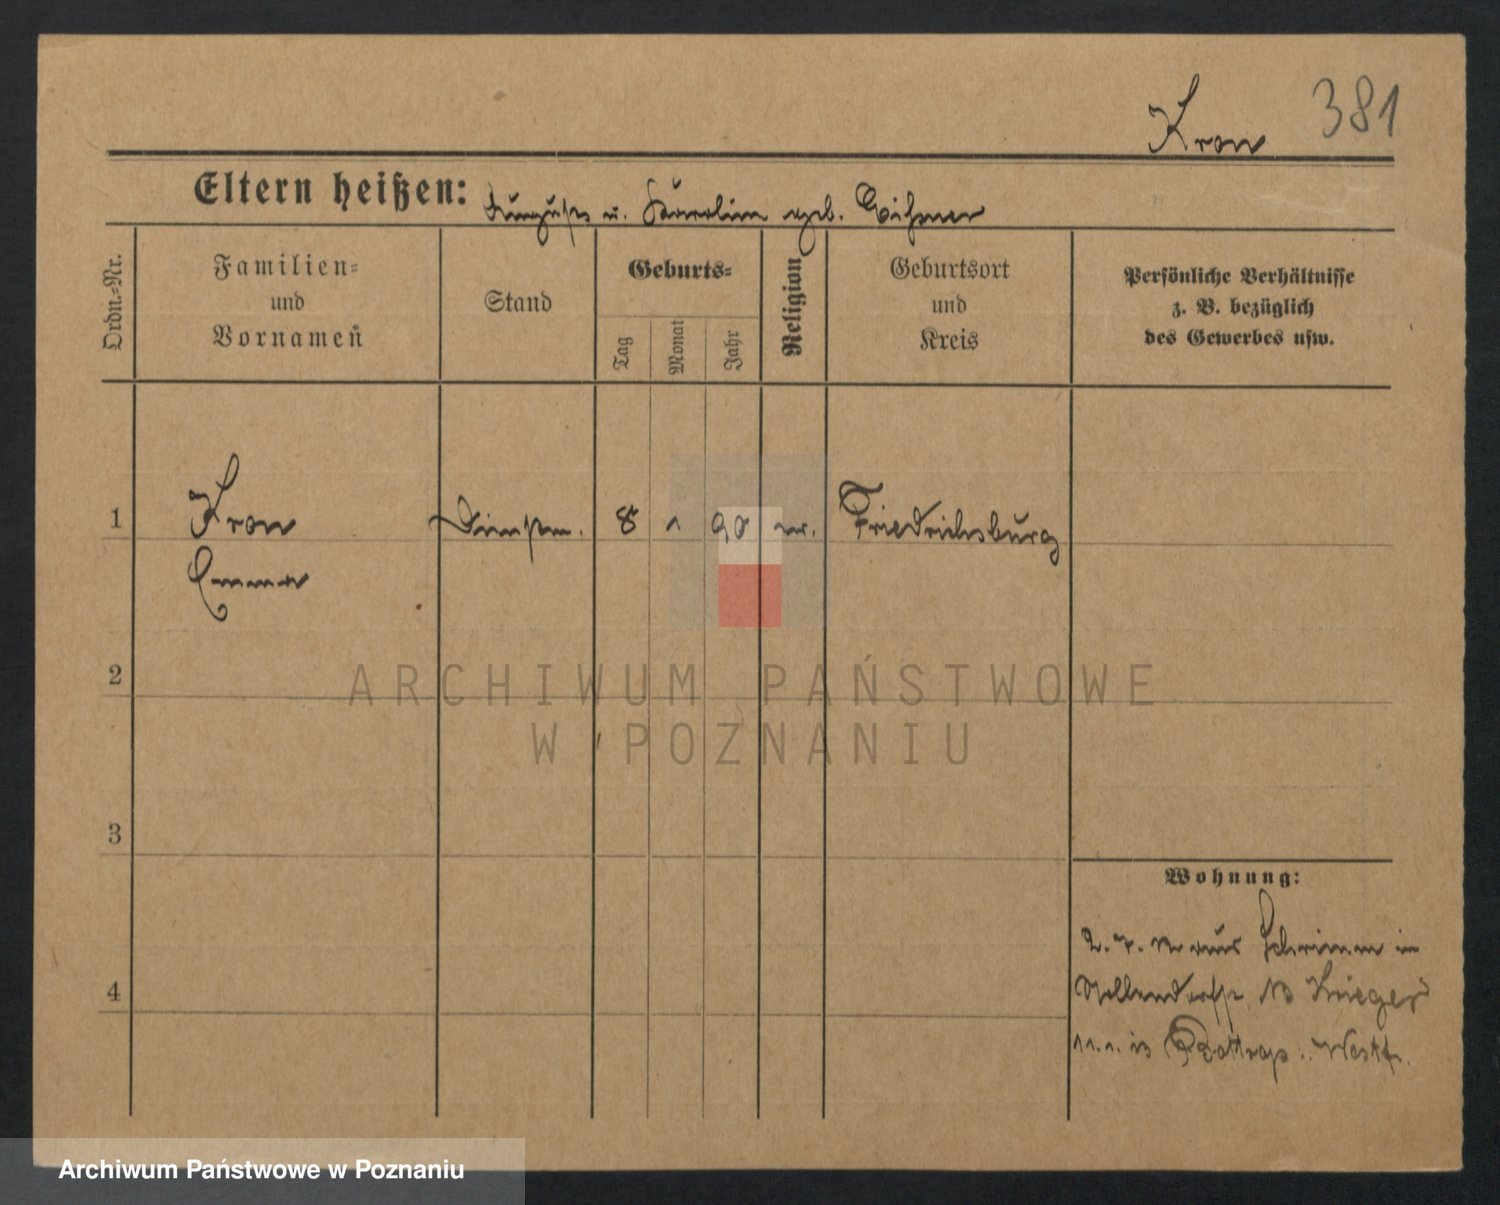 Kron 381
Eltern heißen: August u. Karolin geb.
Ordn.=Nr.
Familien=
und
Vornamen
Stand
Geburts=
Tag
Monat
Jahr
Religion
Geburtsort
und
Kreis
Persönliche Verhältnisse
z. B. bezüglich
des Gewerbes usw.
1 Kron 8 1 90 ev. Friedrichsburg
Emma
2
ARCHIWUM PAŃSTWOWE
W POZNANIU
3
Wohnung:
aus Schrimm in
13 Krieger
4
in Bottrop i. Westf.
Archiwum Państwowe w Poznaniu